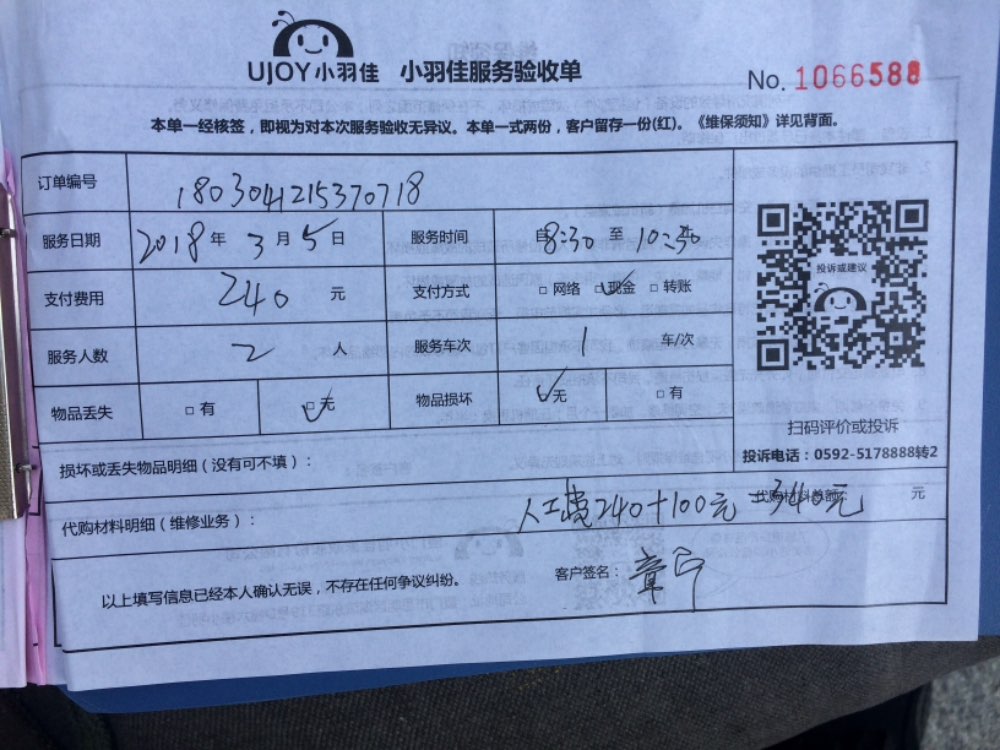 UJOY小羽佳 小羽佳服务验收单
No. 1066588
本单一经核签，即视为对本次服务验收无异议。本单一式两份，客户留存一份(红)。《维保须知》详见背面。
订单编号 1803041215370718
服务日期 2018年3月5日 服务时间 自8:30至10:30
支付费用 240元 支付方式 □网络 □现金 □转账
投诉或建议
服务人数 2人 服务车次 1 车/次
物品丢失 □有 □无 物品损坏 □无 □有
扫码评价或投诉
投诉电话：0592-5178888转2
损坏或丢失物品明细（没有可不填）：
代购材料明细（维修业务）： 人工费240+100元=340元 代购材料总额： 元
以上填写信息已经本人确认无误，不存在任何争议纠纷。 客户签名：